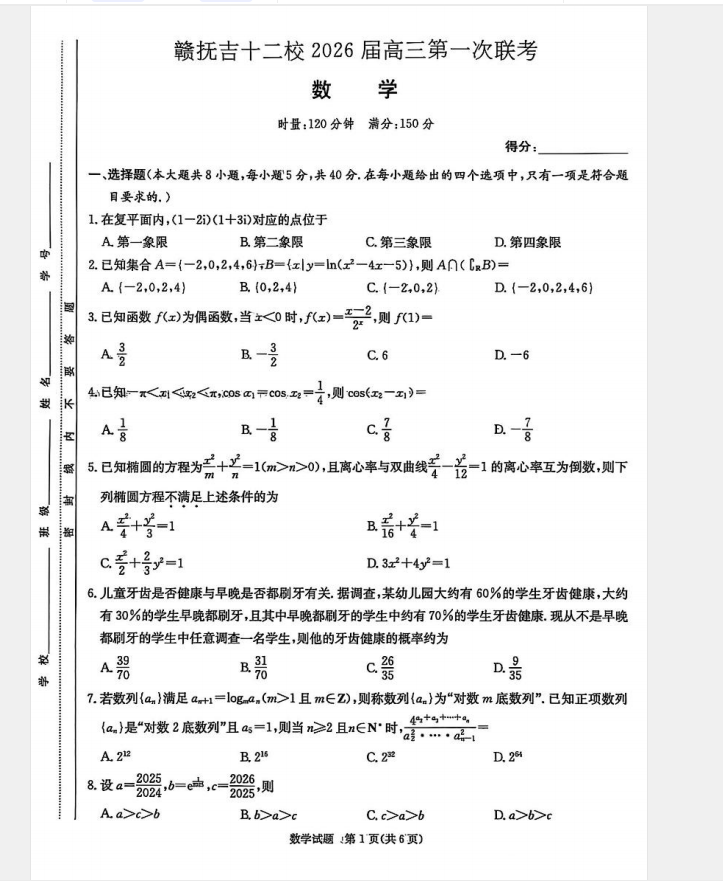 赣抚吉十二校 2026 届高三第一次联考
数 学
时量:120 分钟 满分:150 分
得分:
一、选择题(本大题共 8 小题,每小题 5 分,共 40 分.在每小题给出的四个选项中,只有一项是符合题
目要求的.)
1. 在复平面内,(1-2i)(1+3i)对应的点位于
A. 第一象限 B. 第二象限 C. 第三象限 D. 第四象限
2. 已知集合 A={-2,0,2,4,6},B={x|y=ln(x²-4x-5)},则 A∩(∁RB)=
A. {-2,0,2,4} B. {0,2,4} C. {-2,0,2} D. {-2,0,2,4,6}
3. 已知函数 f(x)为偶函数,当 x<0 时,f(x)=(x-2)/2ˣ,则 f(1)=
A. 3/2 B. -3/2 C. 6 D. -6
4. 已知-π<x₁<x₂<π,cos x₁=cos x₂=1/4,则 cos(x₂-x₁)=
A. 1/8 B. -1/8 C. 7/8 D. -7/8
5. 已知椭圆的方程为x²/m+y²/n=1(m>n>0),且离心率与双曲线x²/4-y²/12=1 的离心率互为倒数,则下
列椭圆方程不满足上述条件的为
A. x²/4+y²/3=1 B. x²/16+y²/4=1
C. x²/2+2/3y²=1 D. 3x²+4y²=1
6. 儿童牙齿是否健康与早晚是否都刷牙有关. 据调查,某幼儿园大约有 60%的学生牙齿健康,大约
有 30%的学生早晚都刷牙,且其中早晚都刷牙的学生中约有 70%的学生牙齿健康. 现从不是早晚
都刷牙的学生中任意调查一名学生,则他的牙齿健康的概率约为
A. 39/70 B. 31/70 C. 26/35 D. 9/35
7. 若数列{aₙ}满足 aₙ₊₁=logₘaₙ(m>1 且 m∈Z),则称数列{aₙ}为“对数 m 底数列”. 已知正项数列
{aₙ}是“对数 2 底数列”且 a₅=1,则当 n≥2 且n∈N*时,4^(a₂+a₃+⋯+aₙ)/(a₂²·⋯·aₙ₋₁²)=
A. 2¹² B. 2¹⁶ C. 2³² D. 2⁶⁴
8. 设 a=2025/2024,b=e,c=2026/2025,则
A. a>c>b B. b>a>c C. c>a>b D. a>b>c
数学试题 第 1 页(共 6 页)
学 校
班 级
姓 名
学 号
密 封 线 内 不 要 答 题